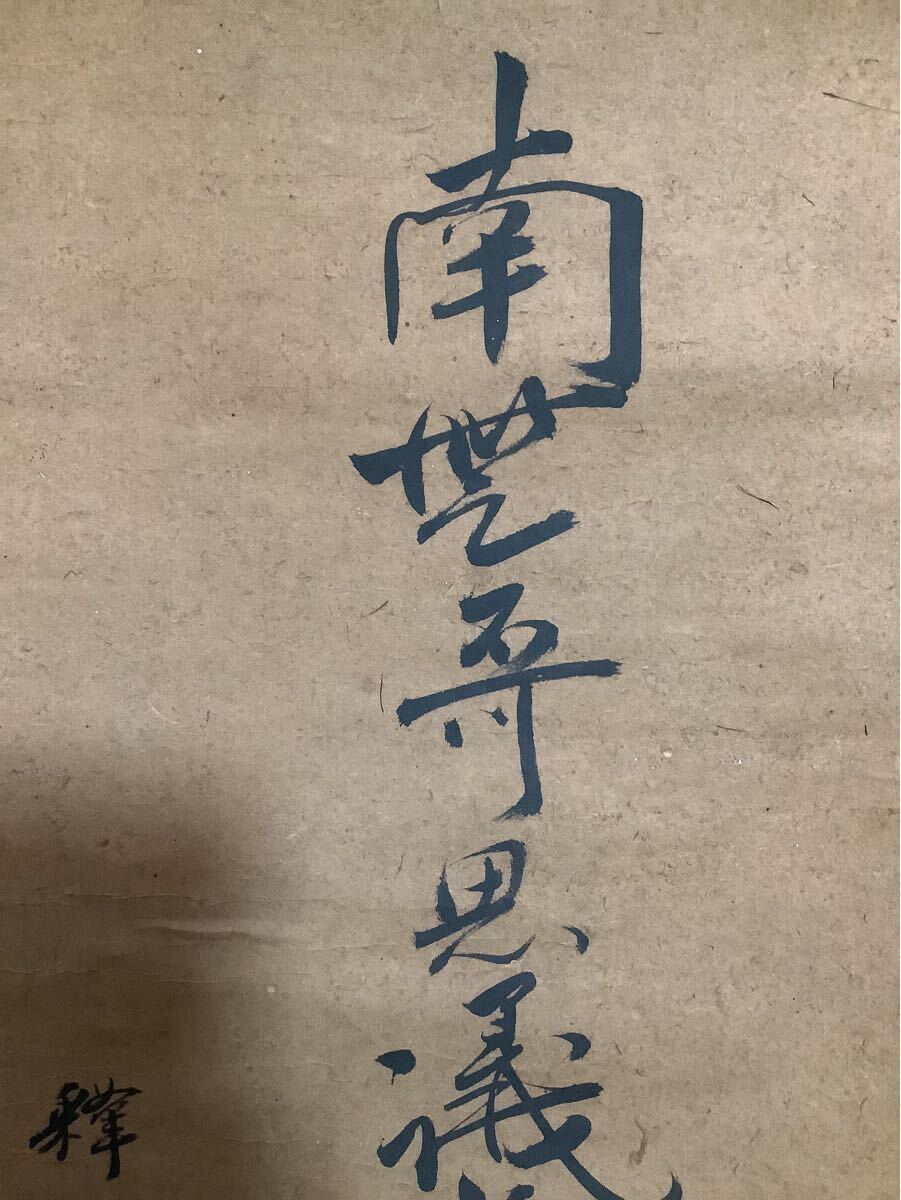 南無不可思議
釋